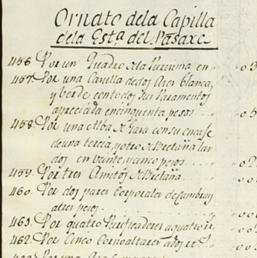 Ornato dela Capilla
dela Est.a del Pasaxe
456 Por un Quadro dela Purisima en
457 Por una Casulla de dos Azes blanca,
y verde con todos sus Paramentos
apreciada en cinquenta pesos
458 Por una Alba de Gara con su encaxe
de una tercia, y otro de Bretaña
dos en veinte, nueve pesos
459 Por tres Amitos de Bretaña
460 Por dos pares Corporales de
a tres pesos
461 Por quatro Purificadores a quatro
462 Por Cinco Cornualtares a